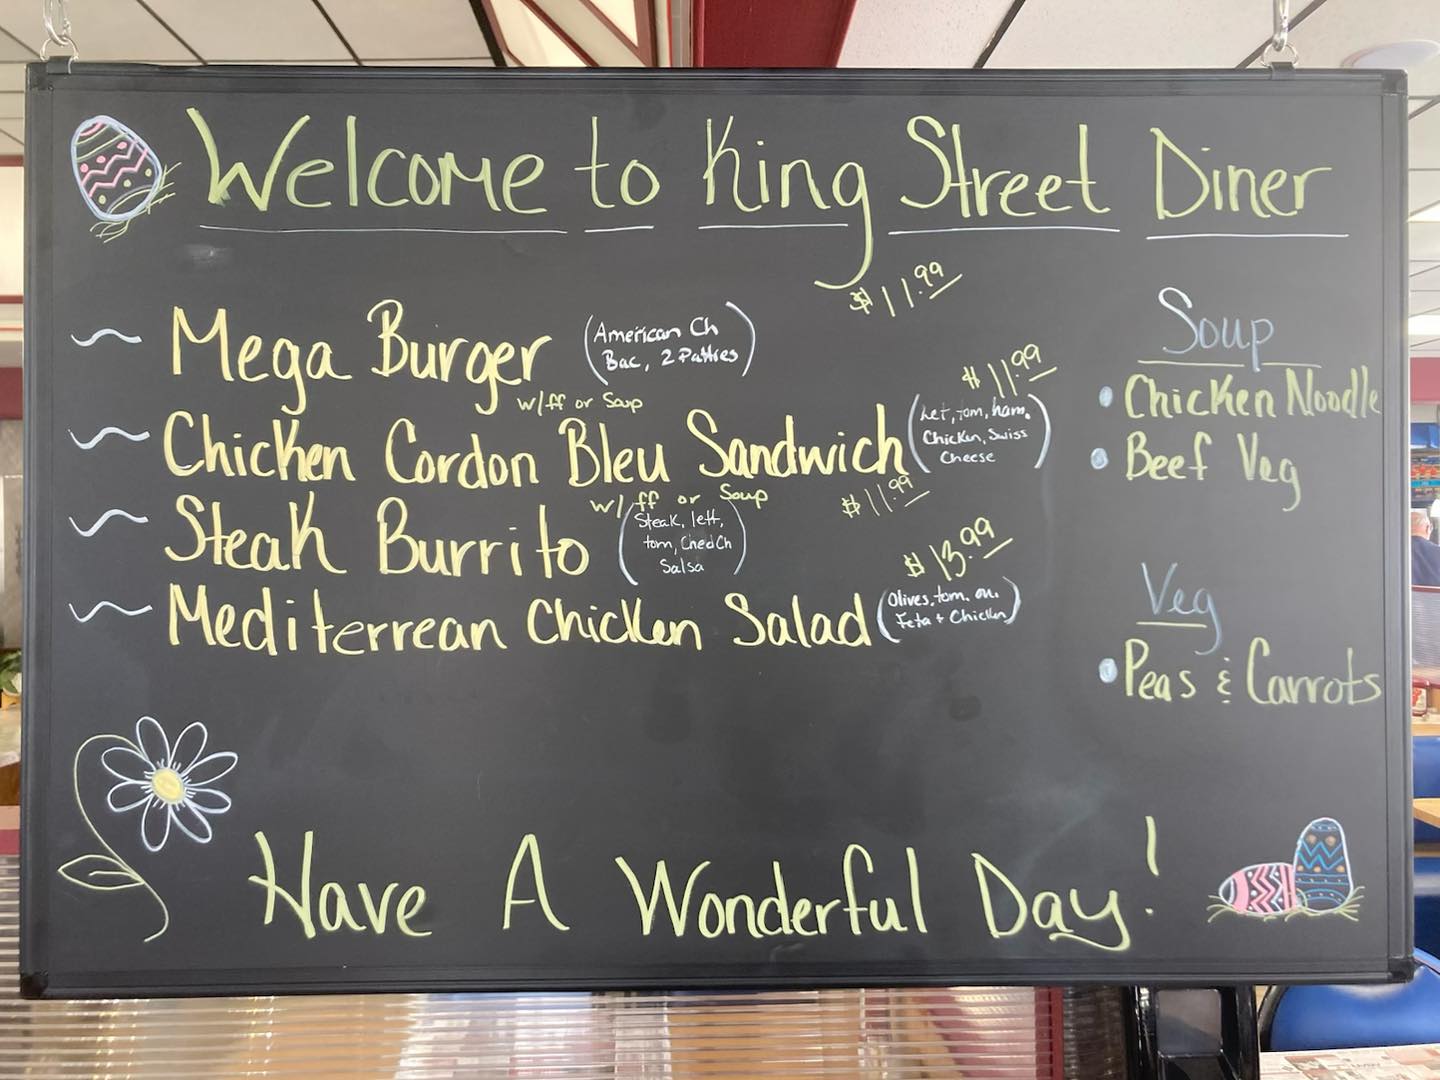 Welcome to King Street Diner
$11.99
Mega Burger (American Ch
Bac, 2 Patties)
w/ff or Soup
$11.99
Chicken Cordon Bleu Sandwich (Let, tom, ham,
Chicken, Swiss
Cheese)
w/ff or Soup
$11.99
Steak Burrito (Steak, lett,
tom, Ched Ch
Salsa)
$13.99
Mediterrean Chicken Salad (Olives, tom. on.
Feta + Chicken)
Soup
• Chicken Noodle
• Beef Veg
Veg
• Peas & Carrots
Have A Wonderful Day!